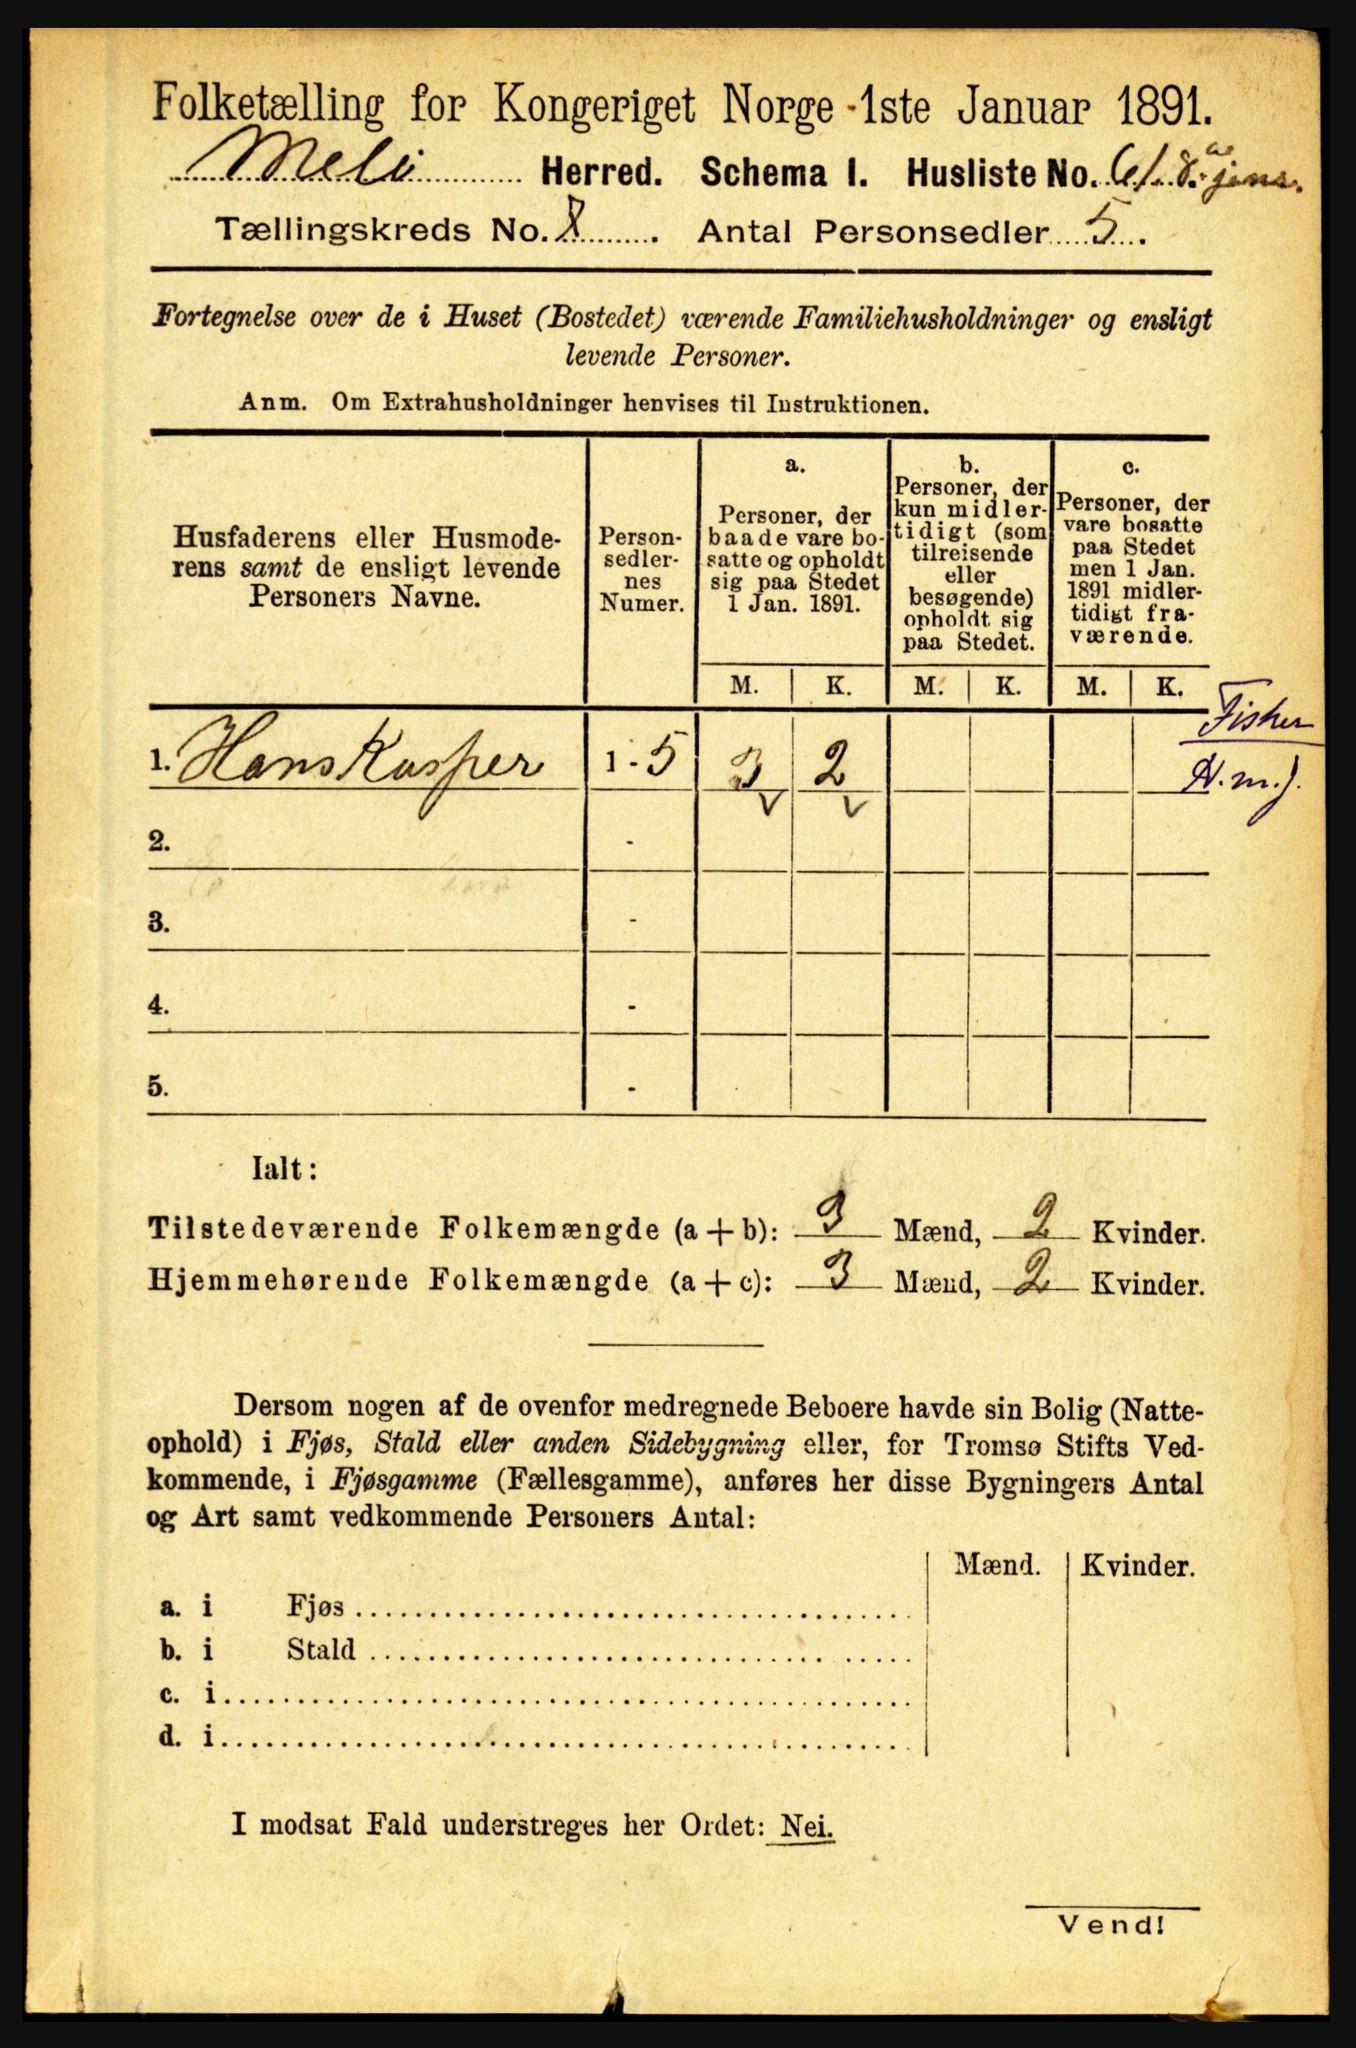 Folketælling for Kongeriget Norge 1ste Januar 1891.
Melö Herred. Schema I. Husliste No. 61
Tællingskreds No. 8. Antal Personsedler 5.
Fortegnelse over de i Huset (Bostedet) værende Familiehusholdninger og ensligt
levende Personer.
Anm. Om Extrahusholdninger henvises til Instruktionen.
Husfaderens eller Husmode-
rens samt de ensligt levende
Personers Navne.
Person-
sedler-
nes
Numer.
a.
Personer, der
baade vare bo-
satte og opholdt
sig paa Stedet
1 Jan. 1891.
b.
Personer, der
kun midler-
tidigt (som
tilreisende
eller
besøgende)
opholdt sig
paa Stedet.
c.
Personer, der
vare bosatte
paa Stedet
men 1 Jan.
1891 midler-
tidigt fra-
værende.
M. K. M. K. M. K.
Fisker
1. Hans Kasper 1 - 5 3 2
2. -
3. -
4. -
5. -
Ialt:
Tilstedeværende Folkemængde (a + b): 3 Mænd, 2 Kvinder.
Hjemmehørende Folkemængde (a + c): 3 Mænd, 2 Kvinder.
Dersom nogen af de ovenfor medregnede Beboere havde sin Bolig (Natte-
ophold) i Fjøs, Stald eller anden Sidebygning eller, for Tromsø Stifts Ved-
kommende, i Fjøsgamme (Fællesgamme), anføres her disse Bygningers Antal
og Art samt vedkommende Personers Antal:
Mænd. Kvinder.
a. i Fjøs
b. i Stald
c. i
d. i
I modsat Fald understreges her Ordet: Nei.
Vend!